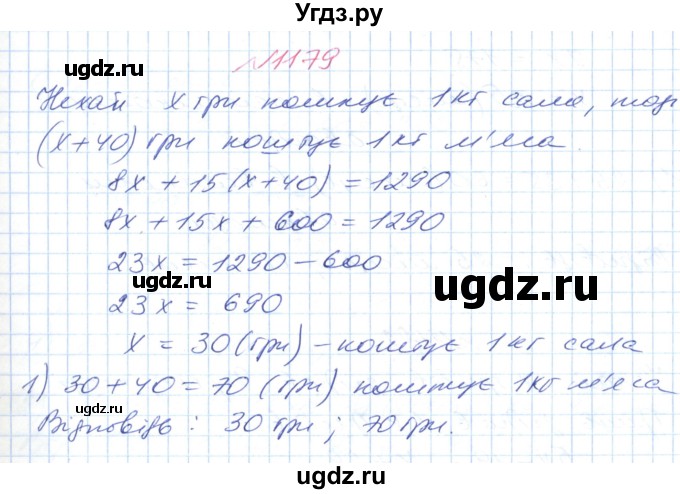 Угдз.ру
ugdz.ru
ugdz.ru
№1179
Нехай x грн коштує 1 кг сала, тоді
(x+40) грн коштує 1 кг м'яса.
8x + 15(x+40) = 1290
8x + 15x + 600 = 1290
23x = 1290 - 600
23x = 690
ugdz.ru
x = 30 (грн) - коштує 1 кг сала
1) 30 + 40 = 70 (грн) коштує 1 кг м'яса
ugdz.ru
Відповідь: 30 грн; 70 грн.
ugdz.ru